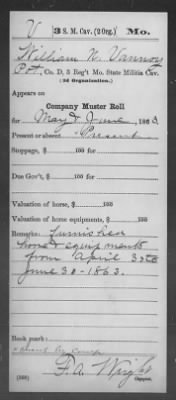 V 3 S. M. Cav. (2 Org.) Mo.
William N. Vannoy
Pvt, Co. D, 3 Reg't Mo. State Militia Cav.
(2d Organization.)
Appears on
Company Muster Roll
for May & June, 1863
Present or absent Present
Stoppage, $ 100 for
Due Gov't, $ 100 for
Valuation of horse, $ 100
Valuation of horse equipments, $ 100
Remarks: Furnished
horse & equipments
from April 30 to
June 30 - 1863.
Book mark:
(358) F. A. Wright
Copyist.